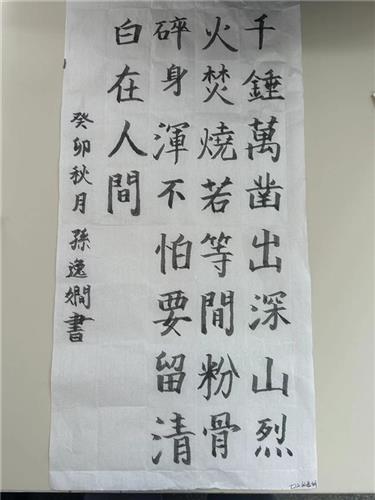 千錘萬凿出深山烈
火焚燒若等閒粉骨
碎身渾不怕要留清
白在人間
癸卯秋月孫逸嫺書